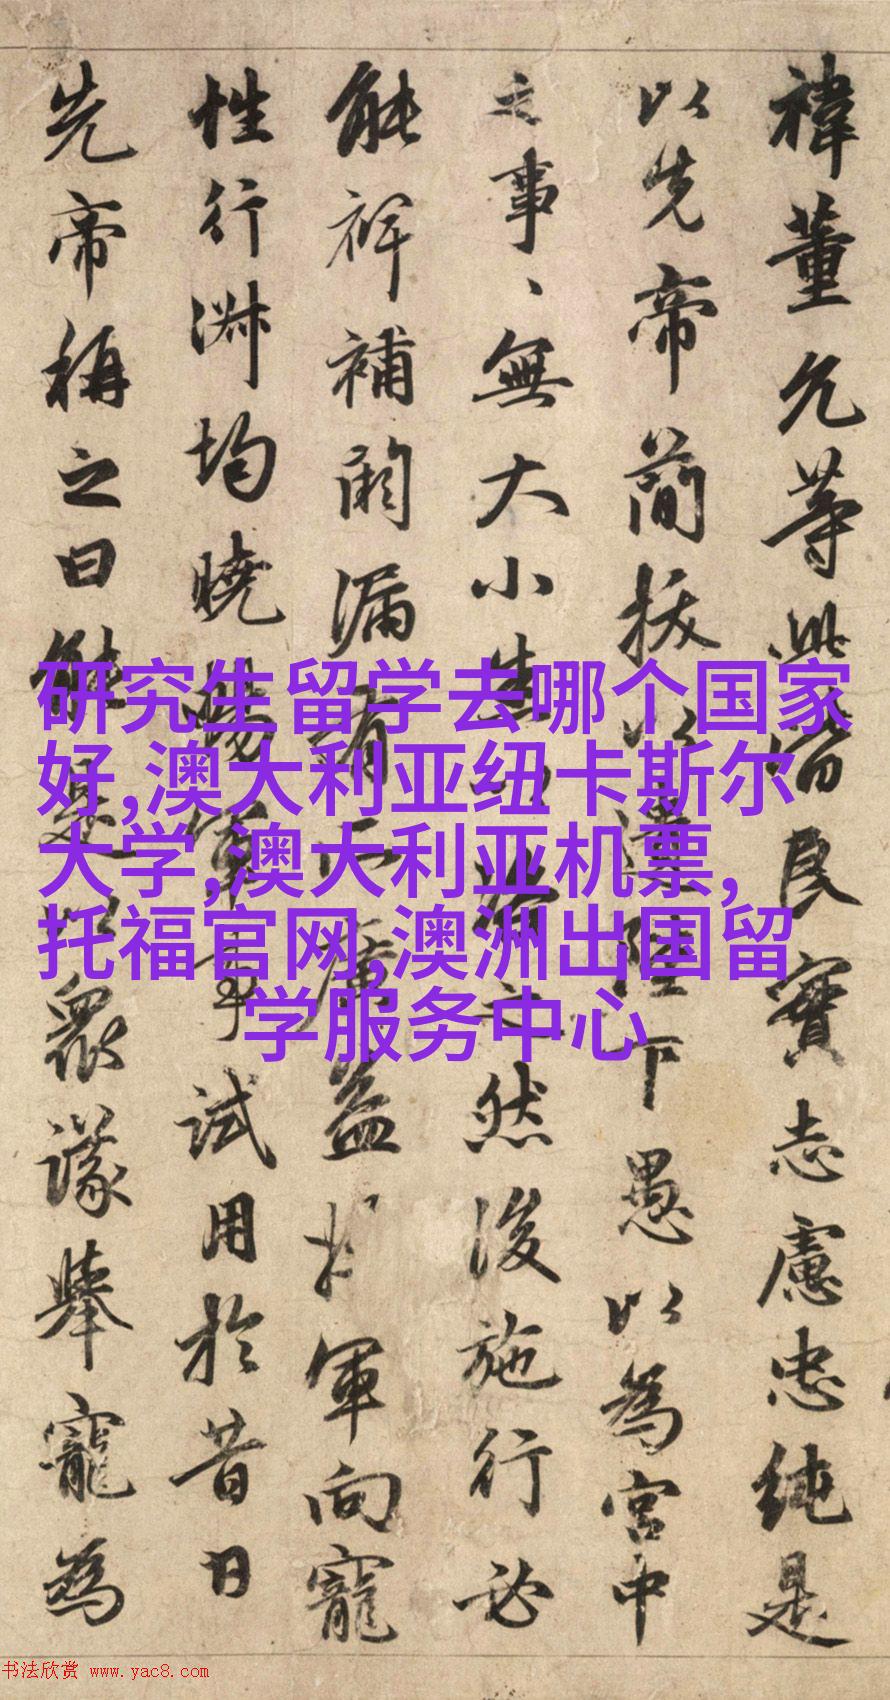 禕董允等此皆良實志慮忠純是
以先帝簡拔以遺陛下愚以為宮中
之事、無大小之然後施行必
能裨補闕漏有所廣益軍向寵
性行淋均曉暢軍事試用於昔日
先帝稱之曰能是以衆議舉寵為
研究生留学去哪个国家
好,澳大利亚纽卡斯尔
大学,澳大利亚机票,
托福官网,澳洲出国留
学服务中心
书法欣赏 www.yac8.com